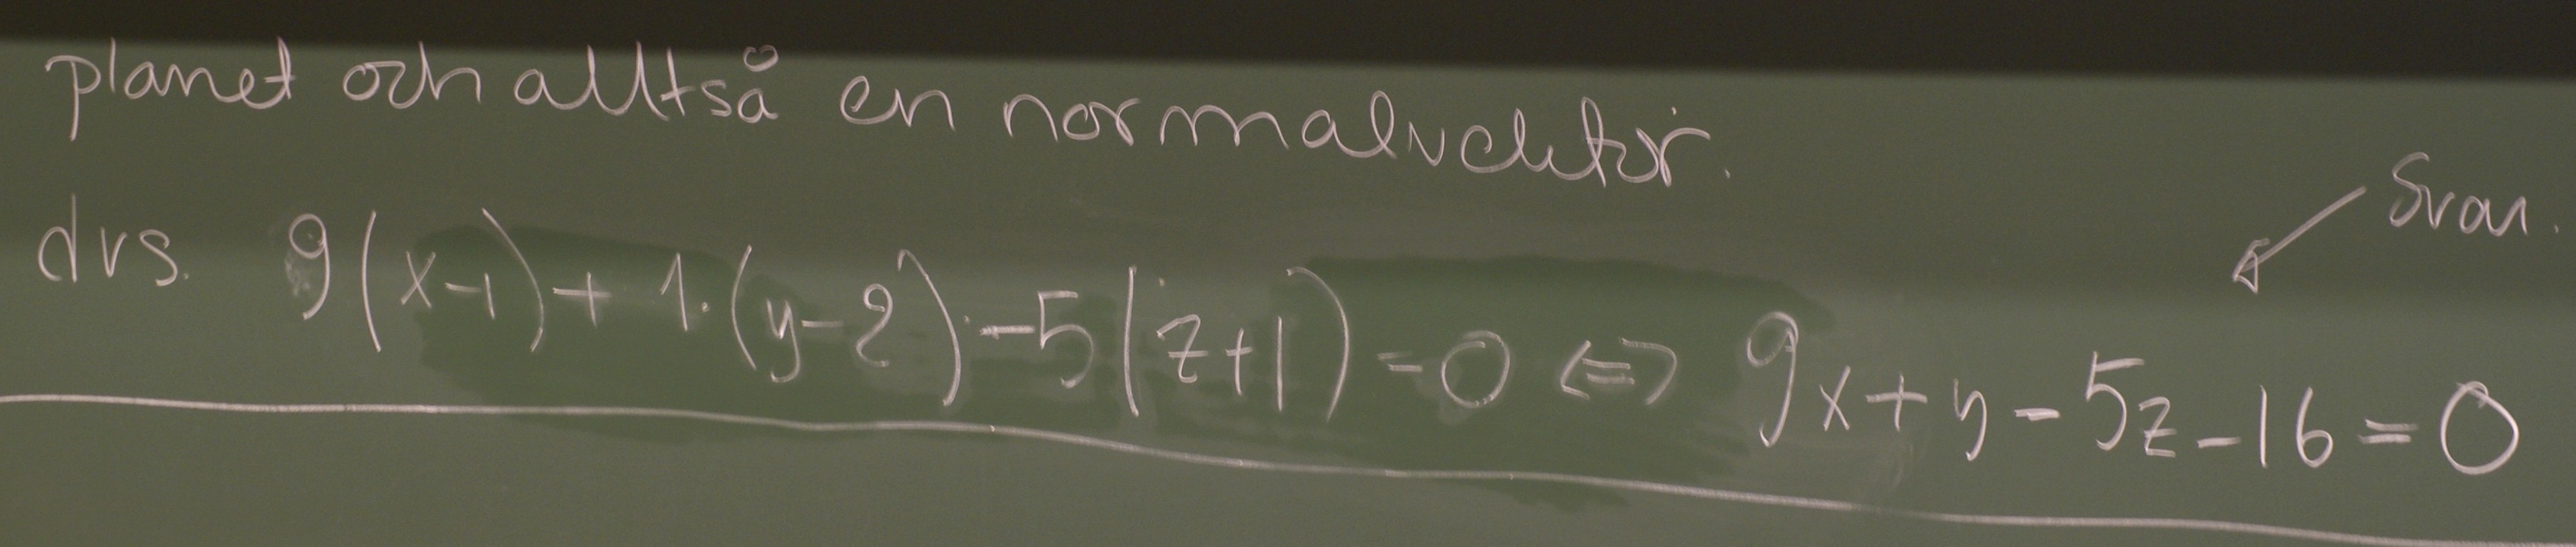 planet och alltså en normalvektor.
Svar.
dvs. 9(x-1)+1·(y-2)·-5(z+1)=0 <=> 9x+y-5z-16=0